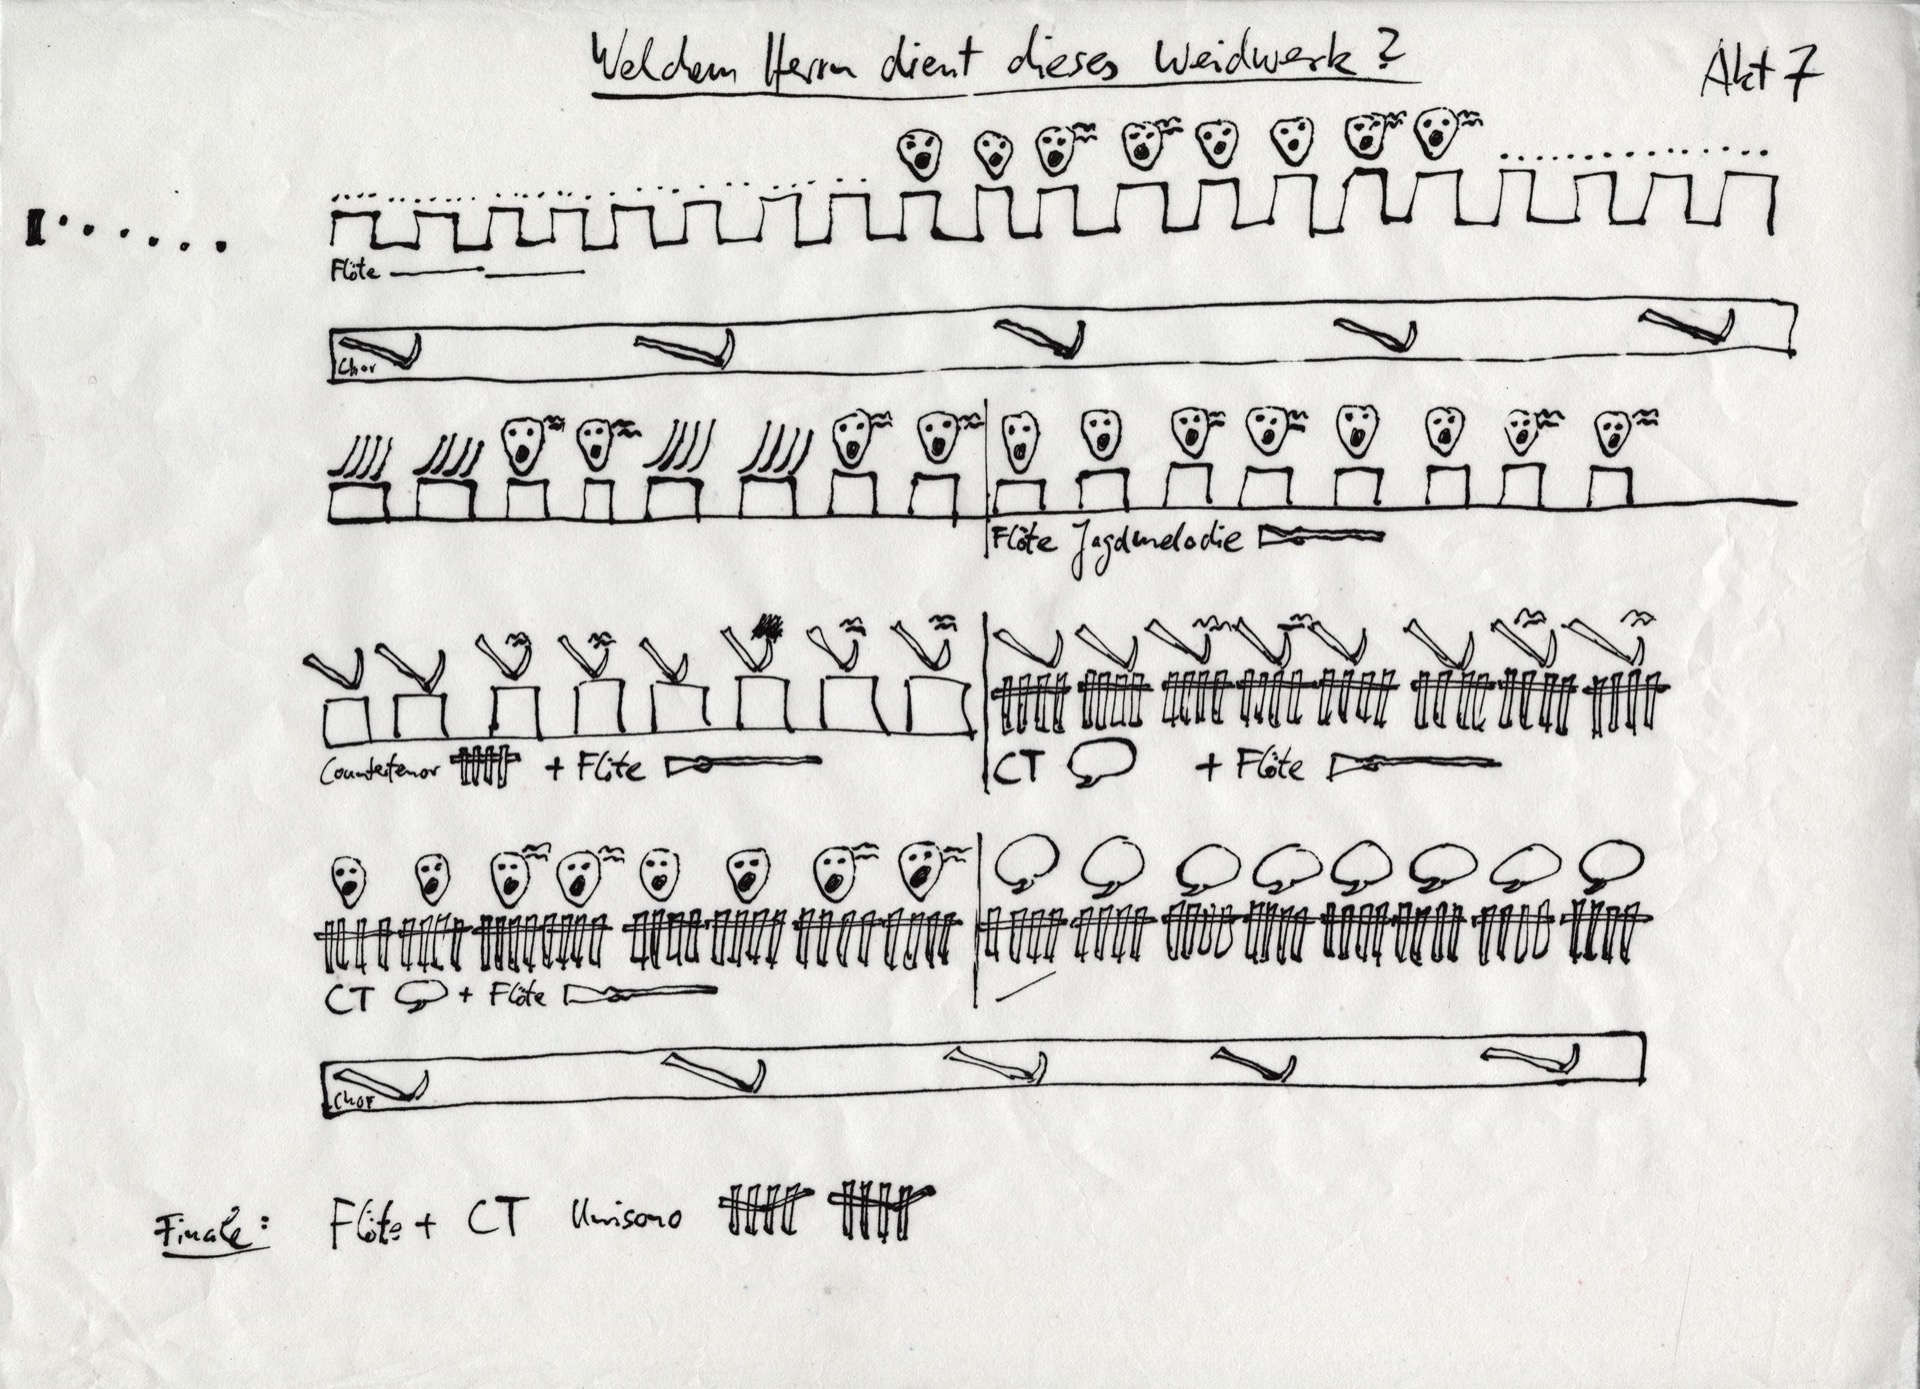 Welchem Herrn dient dieses Weidwerk?
Akt 7
Flöte
Chor
Flöte Jagdmelodie
Countertenor + Flöte
CT + Flöte
CT + Flöte
Chor
Finale: Flöte + CT Unisono